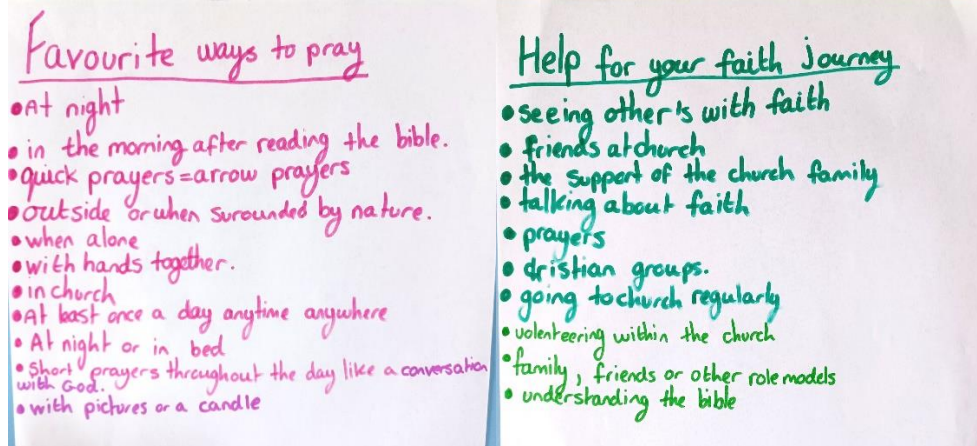 Favourite ways to pray
• At night
• in the morning after reading the bible.
• quick prayers = arrow prayers
• outside or when surounded by nature.
• when alone
• with hands together.
• in church
• At least once a day anytime anywhere
• At night or in bed
• Short prayers throughout the day like a conversation
with God.
• with pictures or a candle
Help for your faith journey
• seeing other's with faith
• friends at church
• the support of the church family
• talking about faith
• prayers
• christian groups.
• going to church regularly
• volenteering within the church
• family, friends or other role models
• understanding the bible